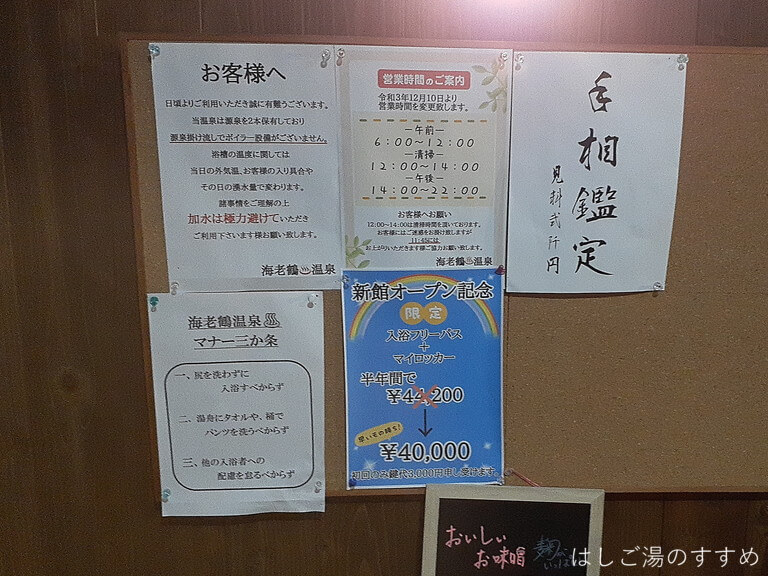 お客様へ
日頃よりご利用いただき誠に有難うございます。
当温泉は源泉を2本保有しており
源泉掛け流しでボイラー設備がございません。
浴槽の温度に関しては
当日の外気温、お客様の入り具合や
その日の湧水量で変わります。
諸事情をご理解の上
加水は極力避けていただき
ご利用下さいます様お願い致します。
海老鶴♨温泉
営業時間のご案内
令和3年12月10日より
営業時間を変更致します。
―午前―
6:00〜12:00
―清掃―
12:00〜14:00
―午後―
14:00〜22:00
お客様へお願い
12:00〜14:00は清掃時間を頂いております。
お客様にはご迷惑をお掛け致しますが
11:45には
お上がりいただきます様ご協力お願い致します。
海老鶴♨温泉
手相鑑定
見料弐阡円
海老鶴温泉♨
マナー三か条
一、尻を洗わずに
入浴すべからず
二、湯舟にタオルや、桶で
パンツを洗うべからず
三、他の入浴者への
配慮を怠るべからず
新館オープン記念
限定
入浴フリーパス
+
マイロッカー
半年間で
¥44,200
↓
早いもの勝ち!
¥40,000
初回のみ鍵代3,000円申し受けます。
おいしい
お味噌
麹
はしご湯のすすめ